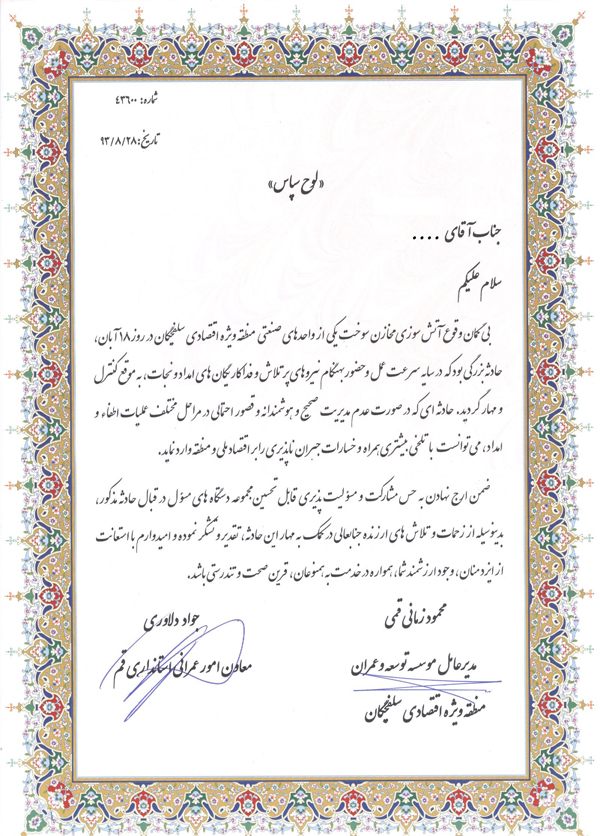 شماره: ٤٣٦٠٠
تاریخ: ٩٣/٨/٢٨
«لوح سپاس»
جناب آقای ....
سلام علیکم
بی گمان وقوع آتش سوزی مخازن سوخت یکی از واحدهای صنعتی منطقه ویژه اقتصادی سلفچگان در روز ١٨ آبان،
حادثه بزرگی بود که در سایه سرعت عمل و حضور بهنگام نیروهای پر تلاش و فداکار یگان های امداد و نجات، به موقع کنترل
و مهار گردید. حادثه ای که در صورت عدم مدیریت صحیح و هوشمندانه و قصور احتمالی در مراحل مختلف عملیات اطفاء و
امداد، می توانست با تلفی بیشتری همراه و خسارات جبران ناپذیری را بر اقتصاد ملی و منطقه وارد نماید.
ضمن ارج نهادن به حس مشارکت و مسؤلیت پذیری قابل تحسین مجموعه دستگاه های مسؤل در قبال حادثه مذکور،
بدینوسیله از زحمات و تلاش های ارزنده جنابعالی در کمک به مهار این حادثه، تقدیر و تشکر نموده و امیدوارم با استعانت
از ایزد منان، وجود ارزشمند شما، همواره در خدمت به همنوعان، قرین صحت و تندرستی باشد.
محمود زمانی قمی
مدیرعامل موسسه توسعه و عمران
منطقه ویژه اقتصادی سلفچگان
جواد دلاوری
معاون امور عمرانی استانداری قم